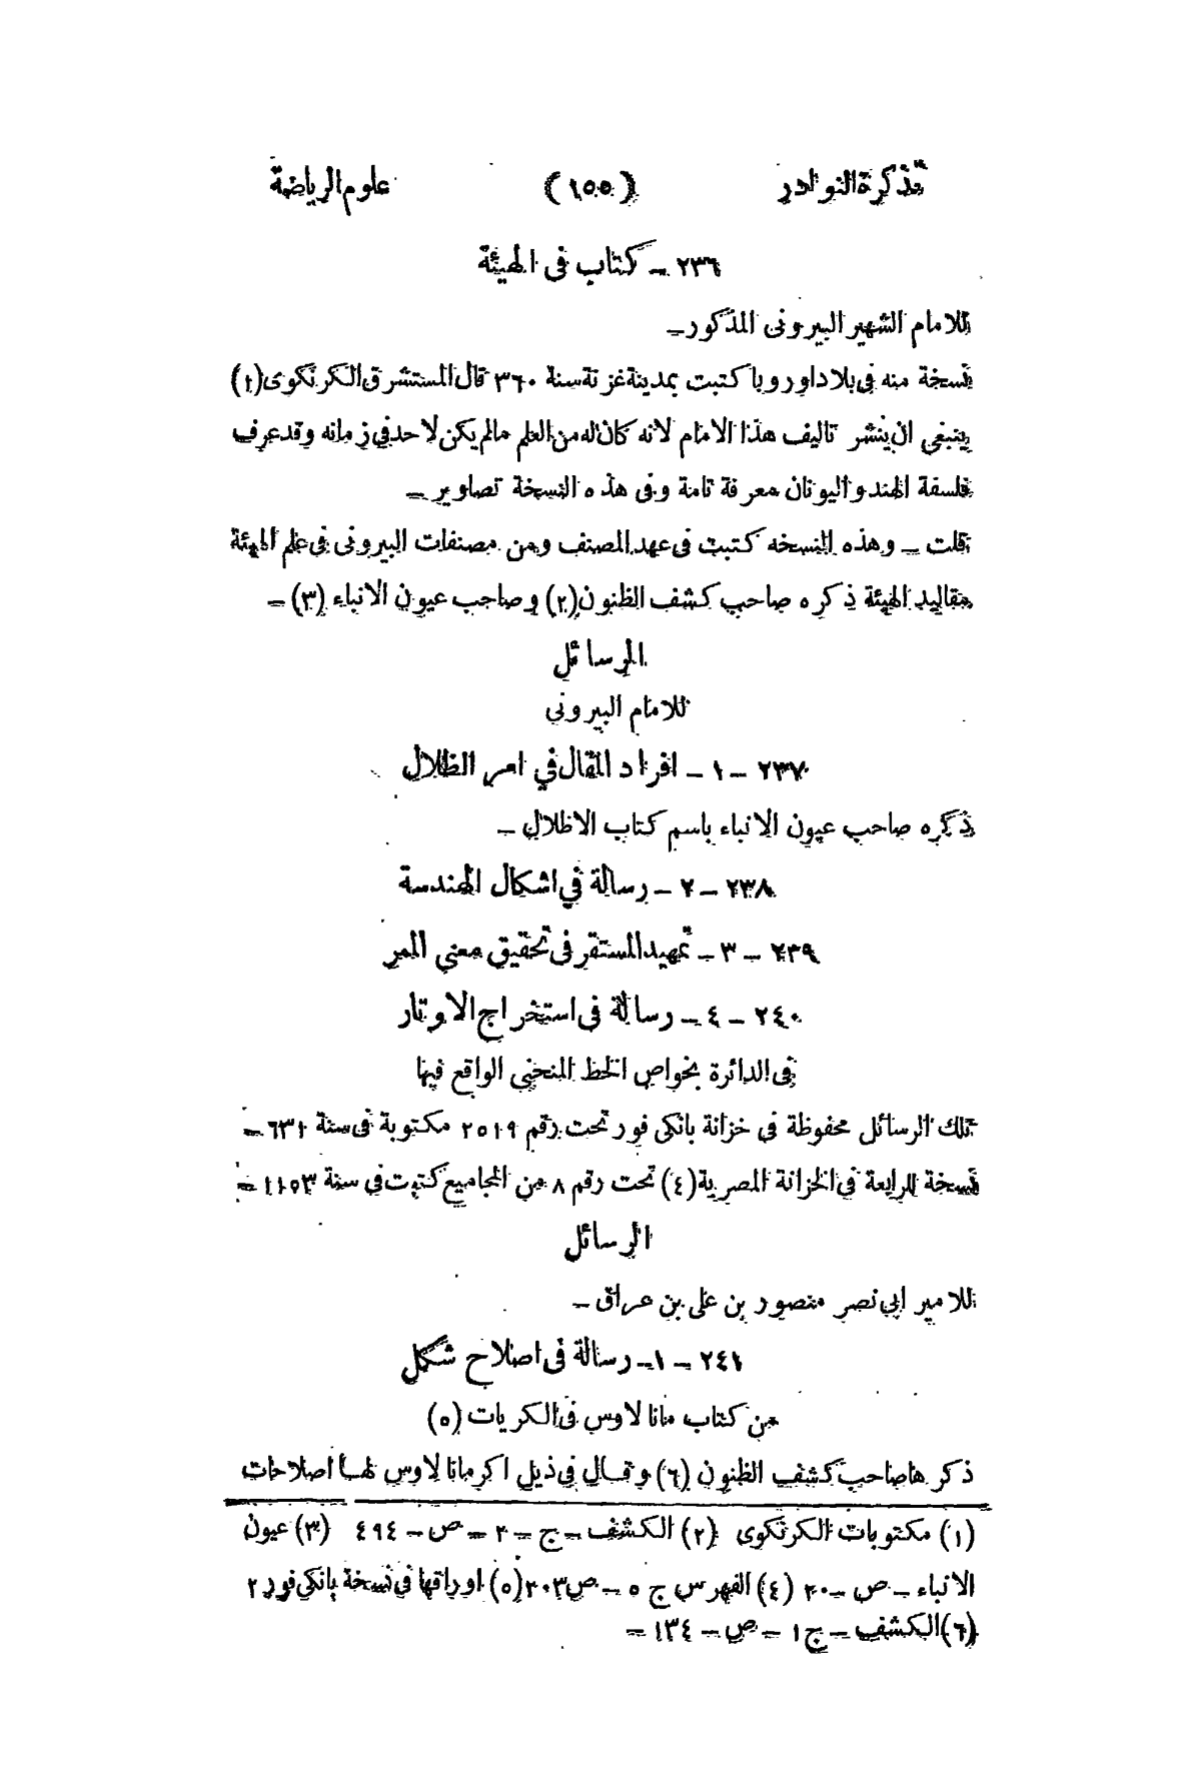 تذكرة النوادر (١٥٥) علوم الرياضة
٢٣٦ ــ كتاب فى الهيئة
للامام الشهير البيرونى المذكور ــ
نسخة منه فى بلاد اوروبا كتبت بمدينة غزنة سنة ٣٦٠ قال المستشرق الكرنكوى (١)
ينبغى ان ينشر تاليف هذا الامام لانه كان له من العلم مالم يكن لاحد فى زمانه وقد عرف
فلسفة الهند واليونان معرفة تامة وفى هذه النسخة تصاوير ــ
قلت ــ وهذه النسخه كتبت فى عهد المصنف ومن مصنفات البيرونى فى علم الهيئة
مقاليد الهيئة ذكره صاحب كشف الظنون (٢) وصاحب عيون الانباء (٣) ــ
الرسائل
للامام البيرونى
٢٣٧ ــ ١ ــ افراد المقال فى امر الظلال
ذكره صاحب عيون الانباء باسم كتاب الاظلال ــ
٢٣٨ ــ ٢ ــ رسالة فى اشكال الهندسة
٢٣٩ ــ ٣ ــ تمهيد المستقر فى تحقيق معنى الممر
٢٤٠ ــ ٤ ــ رسالة فى استخراج الاوتار
فى الدائرة بخواص الخط المنحنى الواقع فيها
تلك الرسائل محفوظة فى خزانة بانكى فور تحت رقم ٢٥١٩ مكتوبة فى سنة ٦٣١ ــ
نسخة الرابعة فى الخزانة المصرية (٤) تحت رقم ٨ من المجاميع كتبت فى سنة ١١٥٣ ــ
الرسائل
للامير ابى نصر منصور بن على بن عراق ــ
٢٤١ ــ ١ ــ رسالة فى اصلاح شكل
من كتاب مانالاوس فى الكريات (٥)
ذكرها صاحب كشف الظنون (٦) وقال فى ذيل اكرمانالاوس لها اصلاحات
(١) مكتوبات الكرنكوى (٢) الكشف ــ ج ــ ٢ ــ ص ــ ٤٩٤ (٣) عيون
الانباء ــ ص ــ ٢٠ (٤) الفهرس ج ٥ ــ ص ٢٠٣ (٥) اوراقها فى نسخة بانكى فور ٢
(٦) الكشف ــ ج ١ ــ ص ــ ١٣٤ ــ